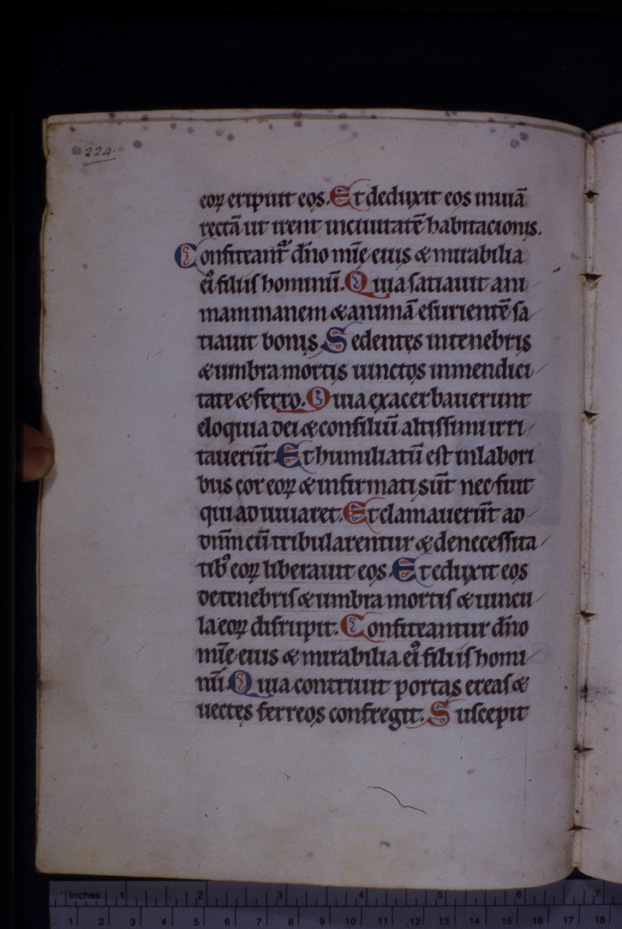 224.
eoꝝ eripuit eos. Et deduxit eos inuiā
rectā ut irent inciuitatē habitacionis.
Confiteant᷑ dño mīe eius & mirabilia
ei᷒ filiis hominū. Quia satiauit ani
mam inanem & animā esurientē sa
tiauit bonis Sedentes intenebris
& umbra mortis uinctos inmendici
tate & ferro. Quia exacerbauerunt
eloquia dei & consiliū altissimi irri
tauerūt Et humiliatū est inlabori
bus cor eoꝝ & infirmati sūt nec fuit
qui adiuuaret. Et clamauerūt ad
dn̄m cū tribularentur & denecessita
tib᷒ eoꝝ liberauit eos. Et eduxit eos
detenebris & umbra mortis & uincu
la eoꝝ disrupit. Confiteantur dño
mīe eius & mirabilia ei᷒ filiis homi
nū. Quia contriuit portas ereas &
uectes ferreos confregit. Suscepit
Inches 1 2 3 4 5 6 7
1 2 3 4 5 6 7 8 9 10 11 12 13 14 15 16 17 18